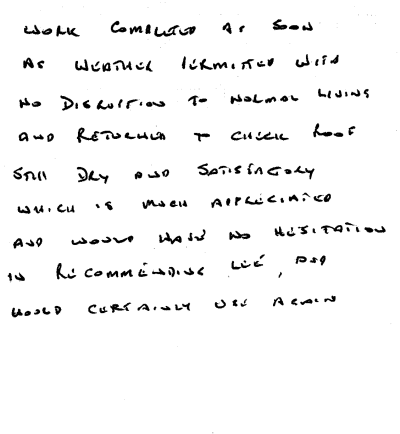 WORK COMPLETED AS SOON
AS WEATHER PERMITTED WITH
NO DISRUPTION TO NORMAL LIVING
AND RETURNED TO CHECK ROOF
STILL DRY AND SATISFACTORY
WHICH IS MUCH APPRECIATED
AND WOULD HAVE NO HESITATION
IN RECOMMENDING LEE, AND
WOULD CERTAINLY USE AGAIN